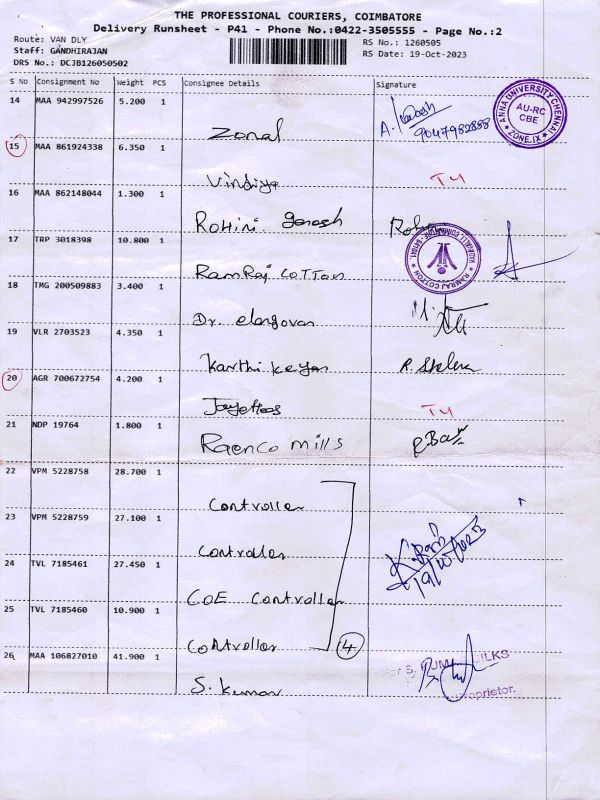 THE PROFESSIONAL COURIERS, COIMBATORE
Delivery Runsheet - P41 - Phone No.:0422-3505555 - Page No.:2
Route: VAN DLY RS No.: 1260505
Staff: GANDHIRAJAN RS Date: 19-Oct-2023
DRS No.: DCJB126050502
S No Consignment No Weight PCS Consignee Details Signature
14 MAA 942997526 5.200 1
Zonal A. 9047982888
ANNA UNIVERSITY CHENNAI AU-RC CBE ZONE.IX
15 MAA 861924338 6.350 1
Vindiya T4
16 MAA 862148044 1.300 1
Rohini ganesh
17 TRP 3018398 10.800 1
Ramraj Cotton RAMRAJ COTTON
18 TMG 200509883 3.400 1
Dr. elangovan
19 VLR 2703523 4.350 1
Karthi keyan R.
20 AGR 700672754 4.200 1
T4
21 NDP 19764 1.800 1
Raenco mills
22 VPM 5228758 28.700 1
Controller
23 VPM 5228759 27.100 1
Controller
24 TVL 7185461 27.450 1
COE Controller 19/10/2023
25 TVL 7185460 10.900 1
Controller 4
26 MAA 106827010 41.900 1
S. Kumar
Proprietor.